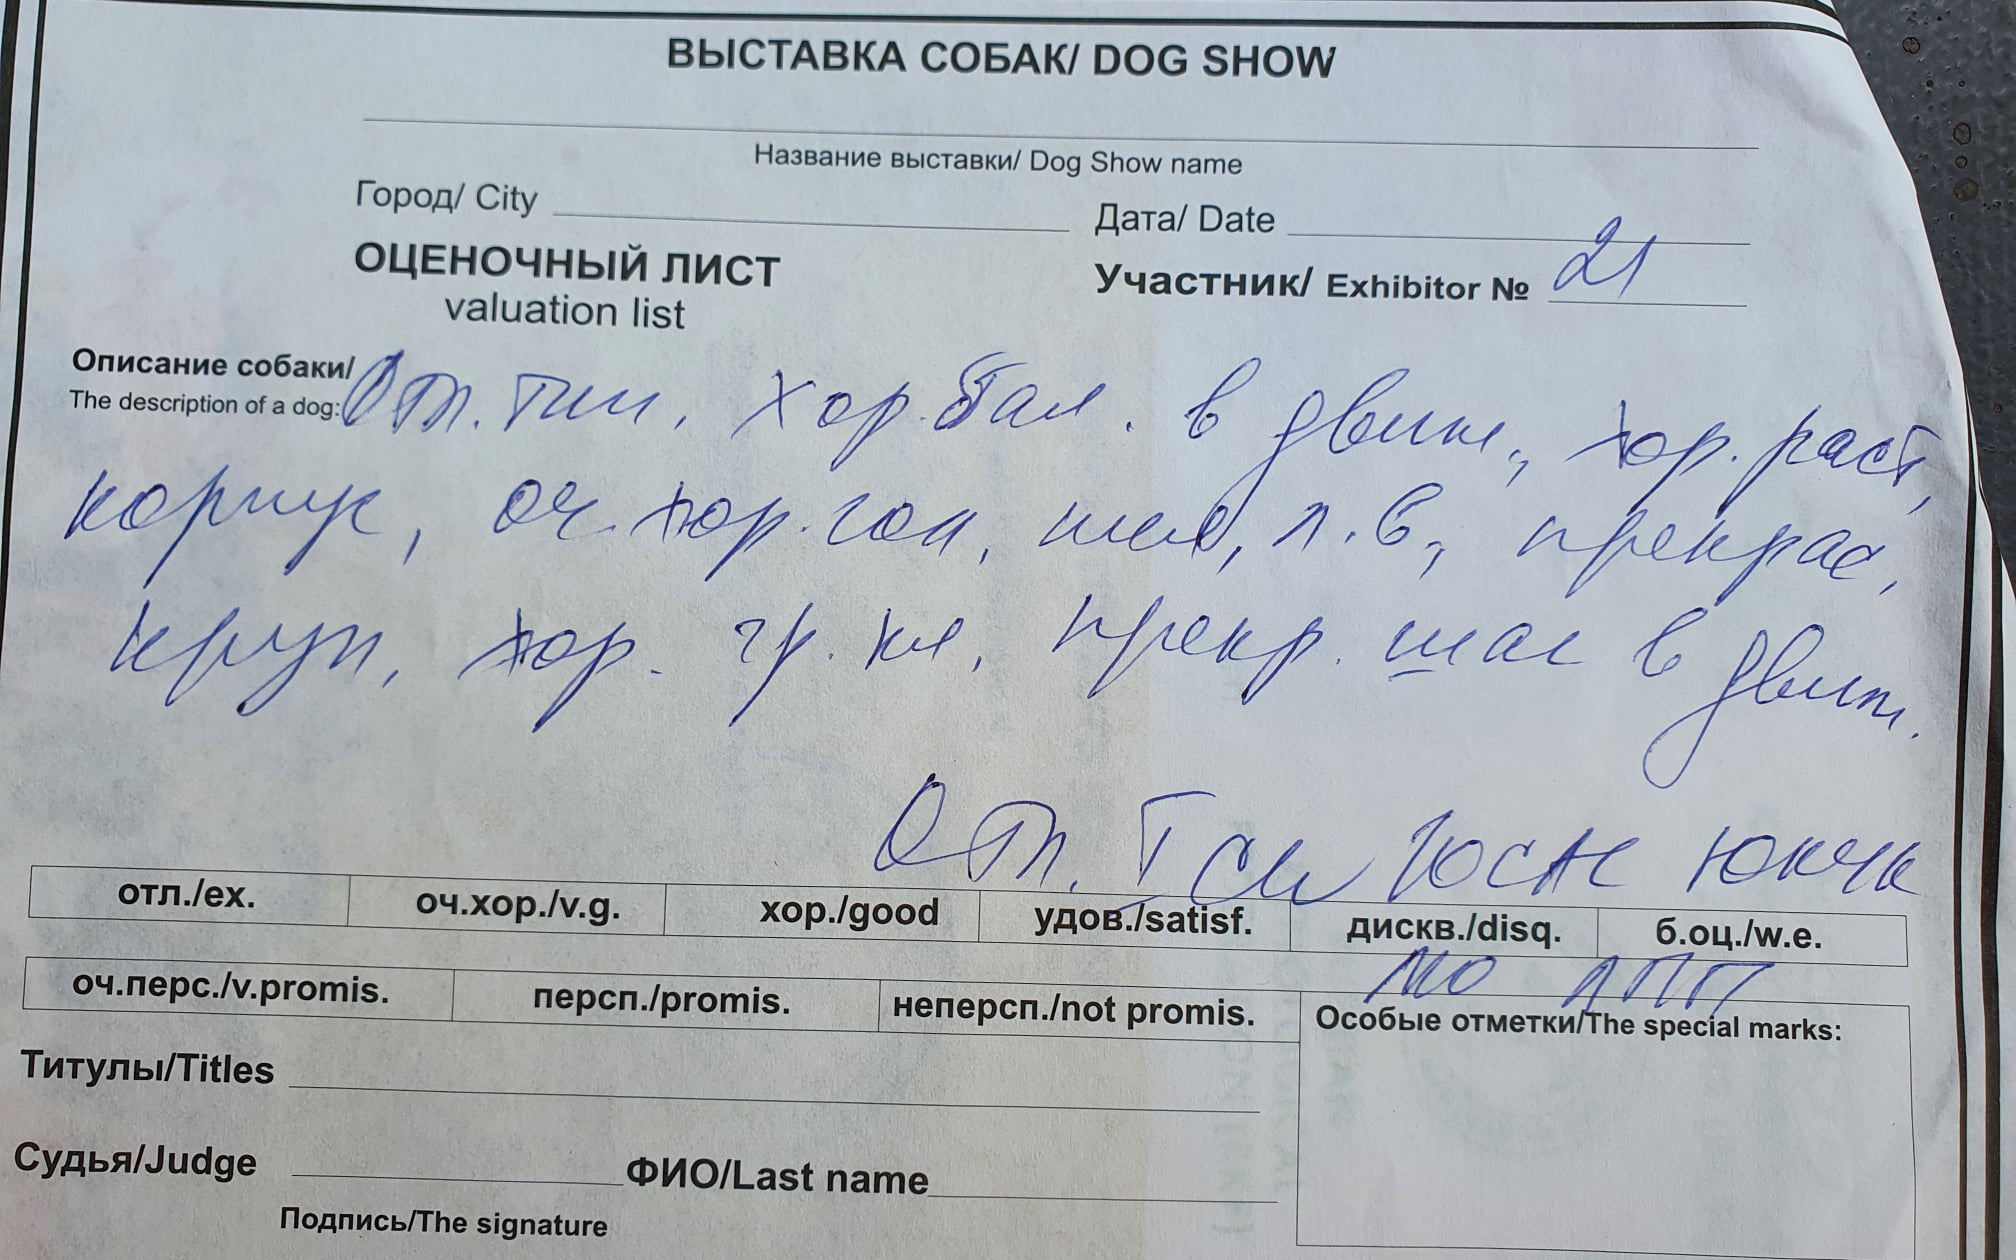 ВЫСТАВКА СОБАК/ DOG SHOW
Название выставки/ Dog Show name
Город/ City
Дата/ Date
ОЦЕНОЧНЫЙ ЛИСТ
valuation list
Участник/ Exhibitor № 21
Описание собаки/
The description of a dog:
Отл. тип, хор. бал. в движ., хор. раст,
корпус, оч. хор. гол, шея, л.в., прекрас,
круп, хор. гр. кл, прекр. шаг в движ.
Отл. I CW ЮСАС ЮКЧК
ЛЮ ЛПП
отл./ex. оч.хор./v.g. хор./good удов./satisf. дискв./disq. б.оц./w.e.
оч.перс./v.promis. персп./promis. неперсп./not promis.
Особые отметки/The special marks:
Титулы/Titles
Судья/Judge
ФИО/Last name
Подпись/The signature